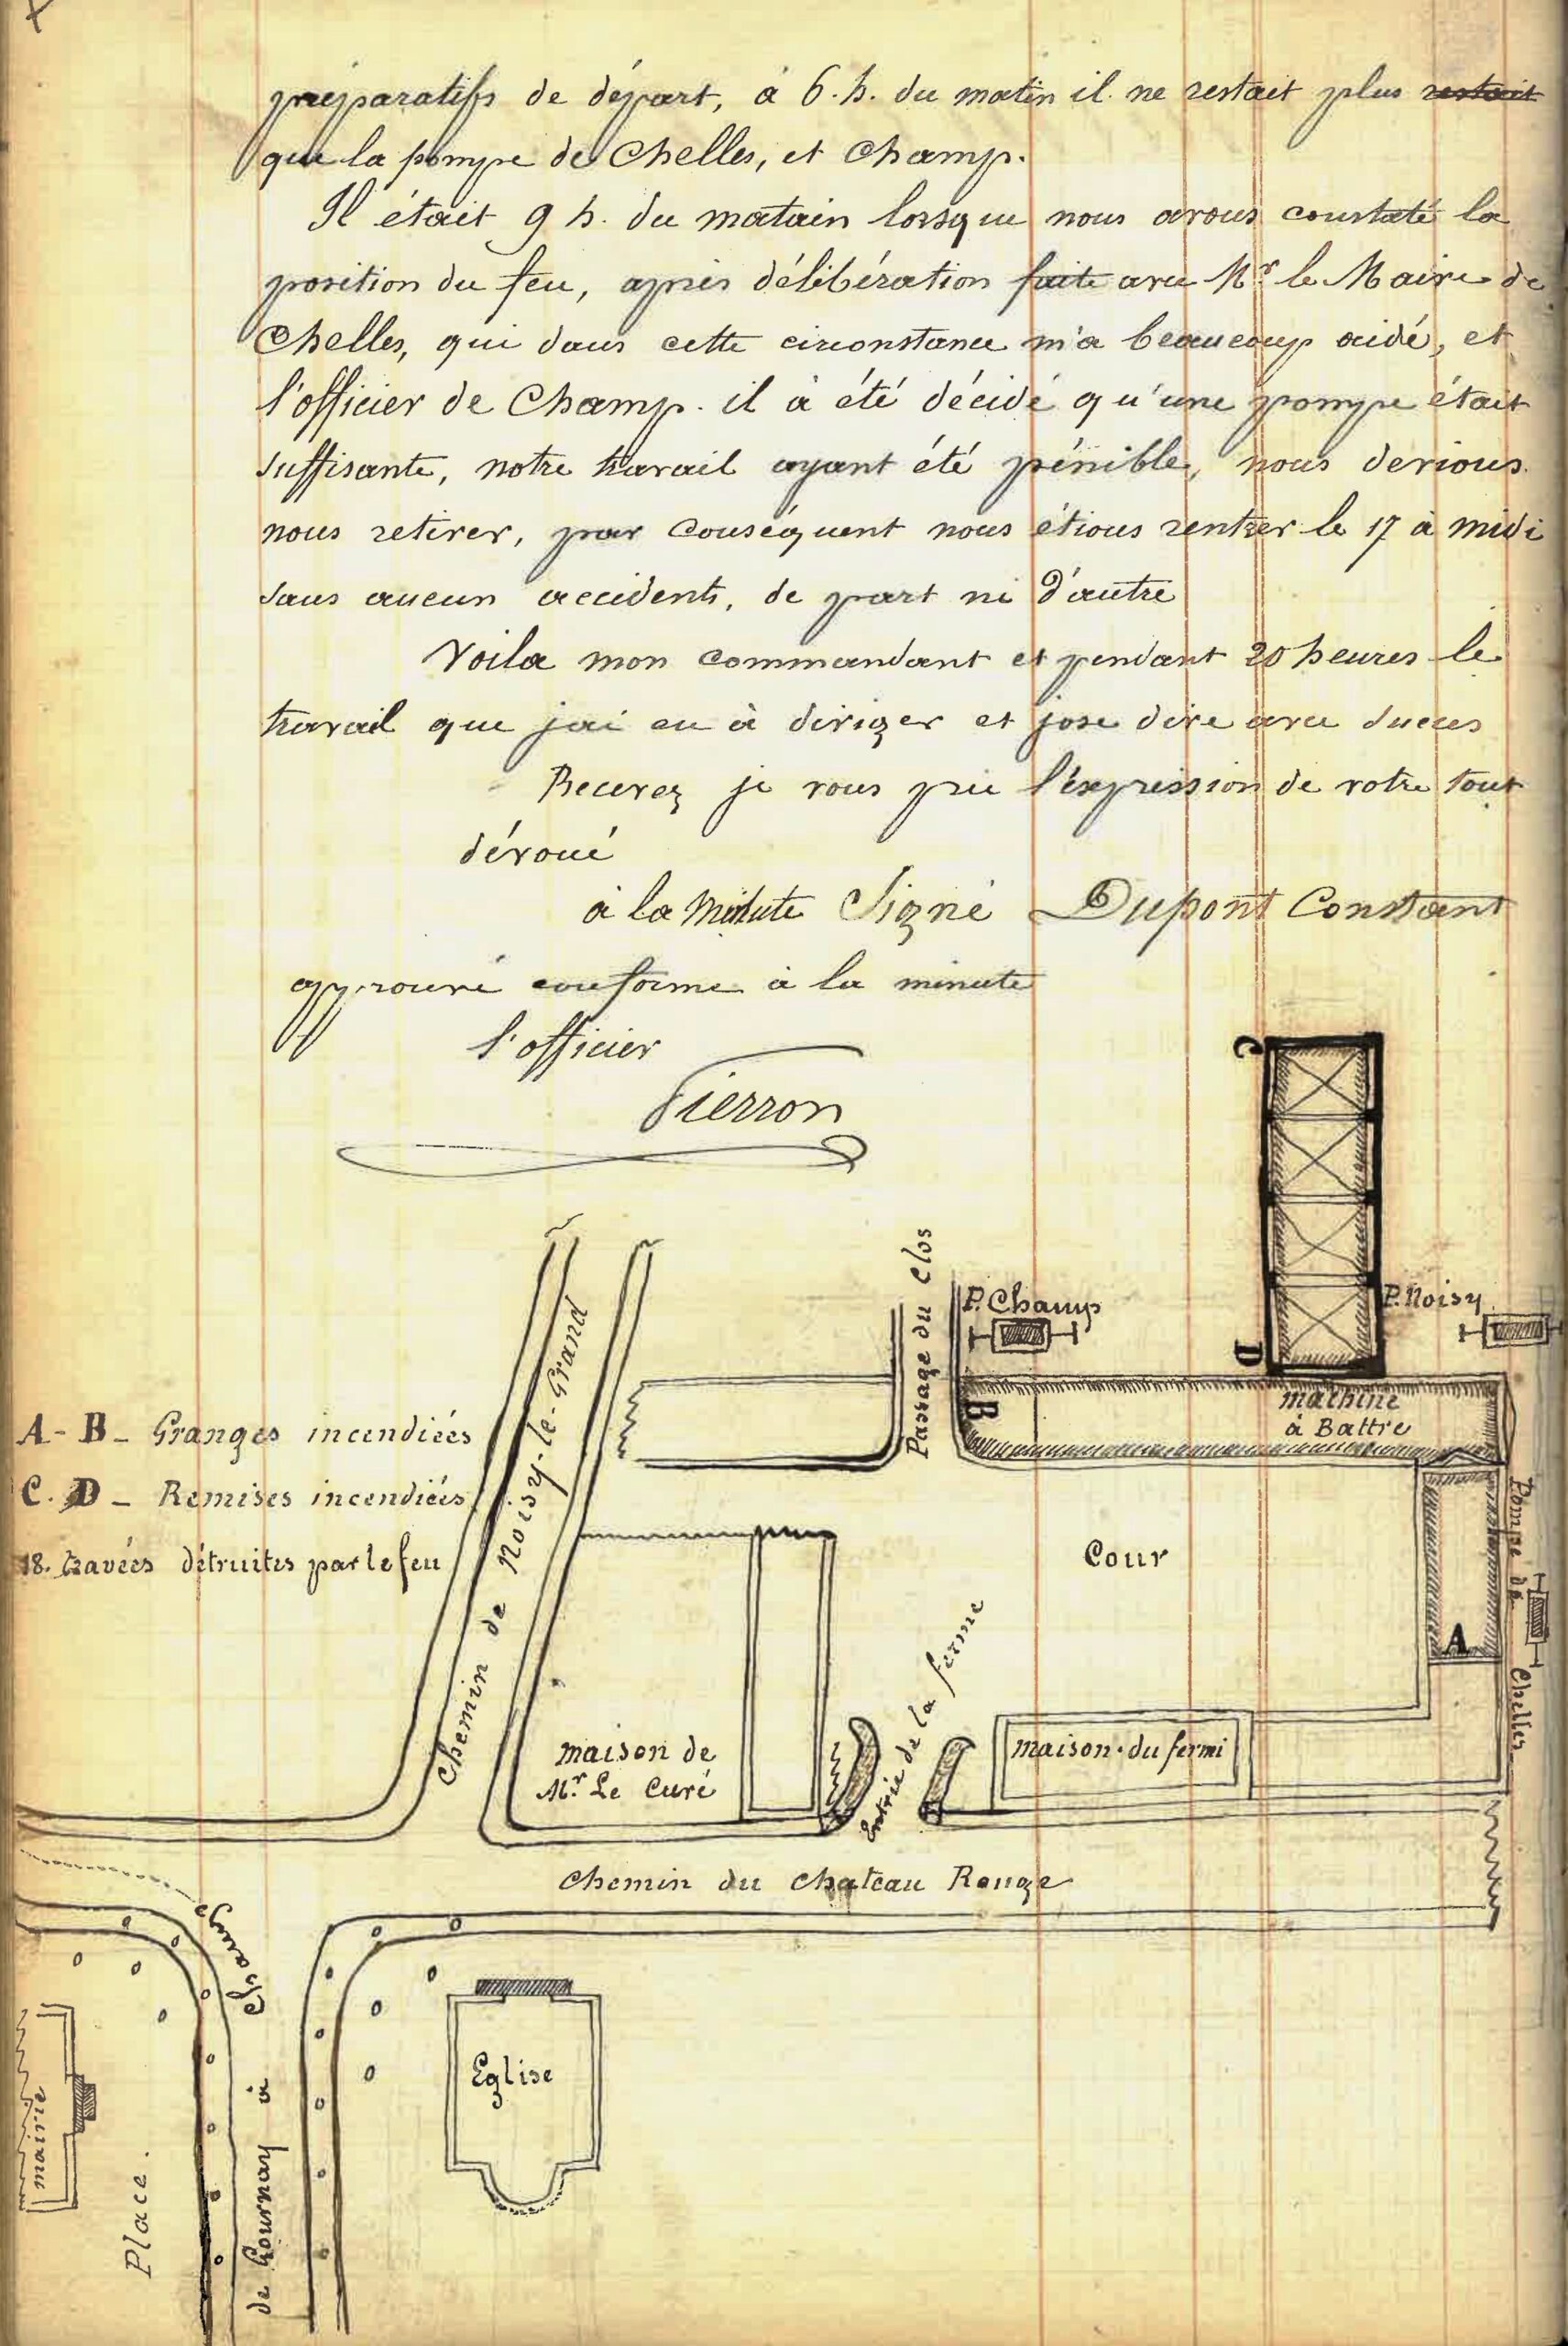 préparatifs de départ, à 6. h. du matin il ne restait plus restait
que la pompe de Chelles, et Champ.
Il était 9 h. du matain lorsque nous avons constaté la
position du feu, après délibération faite avec Mr le Maire de
Chelles, qui dans cette circonstance m'a beaucoup aidé, et
l'officier de Champ. il à été décidé qu'une pompe était
suffisante, notre travail ayant été pénible, nous devions
nous retirer, par conséquent nous étions rentrer le 17 à midi
sans aucun accidents, de part ni d'autre
Voila mon commandant et pendant 20 heures le
travail que jai eu à diriger et jose dire avec succes
Recevez je vous prie l'éxpression de votre tout
dévoué
à la Minute Signé Dupont Constant
approuvé conforme à la minute
l'officier
Pierron
C
Passage du Clos
P. Champ
P. Noisy
D
B
machine
à Battre
A - B - Granges incendiées
C. D - Remises incendiées
18. travées détruites par le feu
Chemin de Noisy-le-Grand
Cour
A
Pompe de Chelles
Entrée de la ferme
maison de
Mr. Le Curé
maison du fermi
Chemin du Chateau Rouge
Eglise
mairie
Place.
de Gournay à Champ